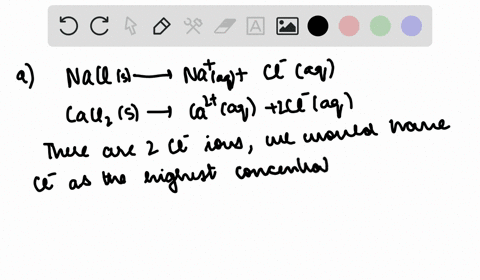 a) NaCl(s) → Na⁺(aq) + Cl⁻(aq)
CaCl₂(s) → Ca²⁺(aq) + 2Cl⁻(aq)
There are 2 Cl⁻ ions, we would have
Cl⁻ as the highest concentrat